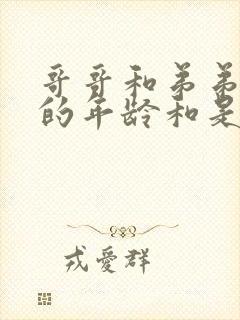 哥哥和弟弟
的年龄和是
戎愛群